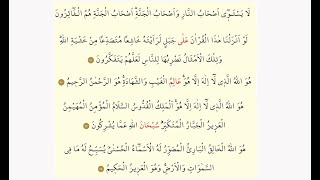 لَا يَسْتَوِي أَصْحَابُ النَّارِ وَأَصْحَابُ الْجَنَّةِ أَصْحَابُ الْجَنَّةِ هُمُ الْفَائِزُونَ
لَوْ أَنْزَلْنَا هَذَا الْقُرْآنَ عَلَى جَبَلٍ لَرَأَيْتَهُ خَاشِعًا مُتَصَدِّعًا مِنْ خَشْيَةِ اللَّهِ
وَتِلْكَ الْأَمْثَالُ نَضْرِبُهَا لِلنَّاسِ لَعَلَّهُمْ يَتَفَكَّرُونَ
هُوَ اللَّهُ الَّذِي لَا إِلَهَ إِلَّا هُوَ عَالِمُ الْغَيْبِ وَالشَّهَادَةِ هُوَ الرَّحْمَنُ الرَّحِيمُ
هُوَ اللَّهُ الَّذِي لَا إِلَهَ إِلَّا هُوَ الْمَلِكُ الْقُدُّوسُ السَّلَامُ الْمُؤْمِنُ الْمُهَيْمِنُ
الْعَزِيزُ الْجَبَّارُ الْمُتَكَبِّرُ سُبْحَانَ اللَّهِ عَمَّا يُشْرِكُونَ
هُوَ اللَّهُ الْخَالِقُ الْبَارِئُ الْمُصَوِّرُ لَهُ الْأَسْمَاءُ الْحُسْنَى يُسَبِّحُ لَهُ مَا فِي
السَّمَوَاتِ وَالْأَرْضِ وَهُوَ الْعَزِيزُ الْحَكِيمُ